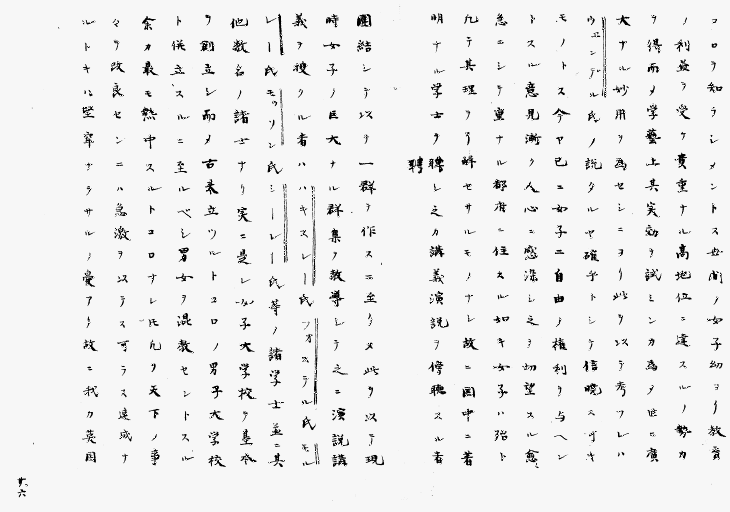 コロヲ知ラシメントス世間ノ女子幼ヨリ教育
ノ利益ヲ受ケ貴重ナル高地位ニ達スルノ勢力
ヲ得而メ学藝上其実効ヲ試ミンカ為メ世ニ廣
大ナル妙用ヲ為セシニヨリ此ヲ以テ考フレハ
ウェンデル氏ノ説タルヤ確乎トシテ信暁スヘキ
モノトス今ヤ已ニ女子ニ自由ノ権利ヲ与ヘン
トスル意見漸ク人心ニ感深シ之ヲ切望スル愈
急ニシテ重ナル都府ニ住スル如キ女子ハ殆ト
凡テ其理ヲ了解セサルモノナレ故ニ国中ニ著
明ナル学士ヲ聘シ之カ講義演説ヲ傍聴スル者
聘
團結シテ以テ一群ヲ作スニ至リメ此ヲ以テ現
時女子ノ巨大ナル群集ヲ教導シテ之ニ演説講
義ヲ授クル者ハハキスレー氏フオステル氏モル
レー氏モツソン氏シーレー氏等ノ諸学士並ニ其
他数名ノ諸士ナリ実ニ是レ女子大学校ヲ基本
ヲ創立シ而メ古来立ツルトコロノ男子大学校
ト併立スルニ至ルベシ男女ヲ混教セントスル
余カ最モ熱中スルトコロナレ氏凡ソ天下ノ事
々ヲ改良センニハ急激ヲ以テス可ラス達成ナ
ルトキハ堅牢ナラサルノ憂アリ故ニ我カ英国
廿六